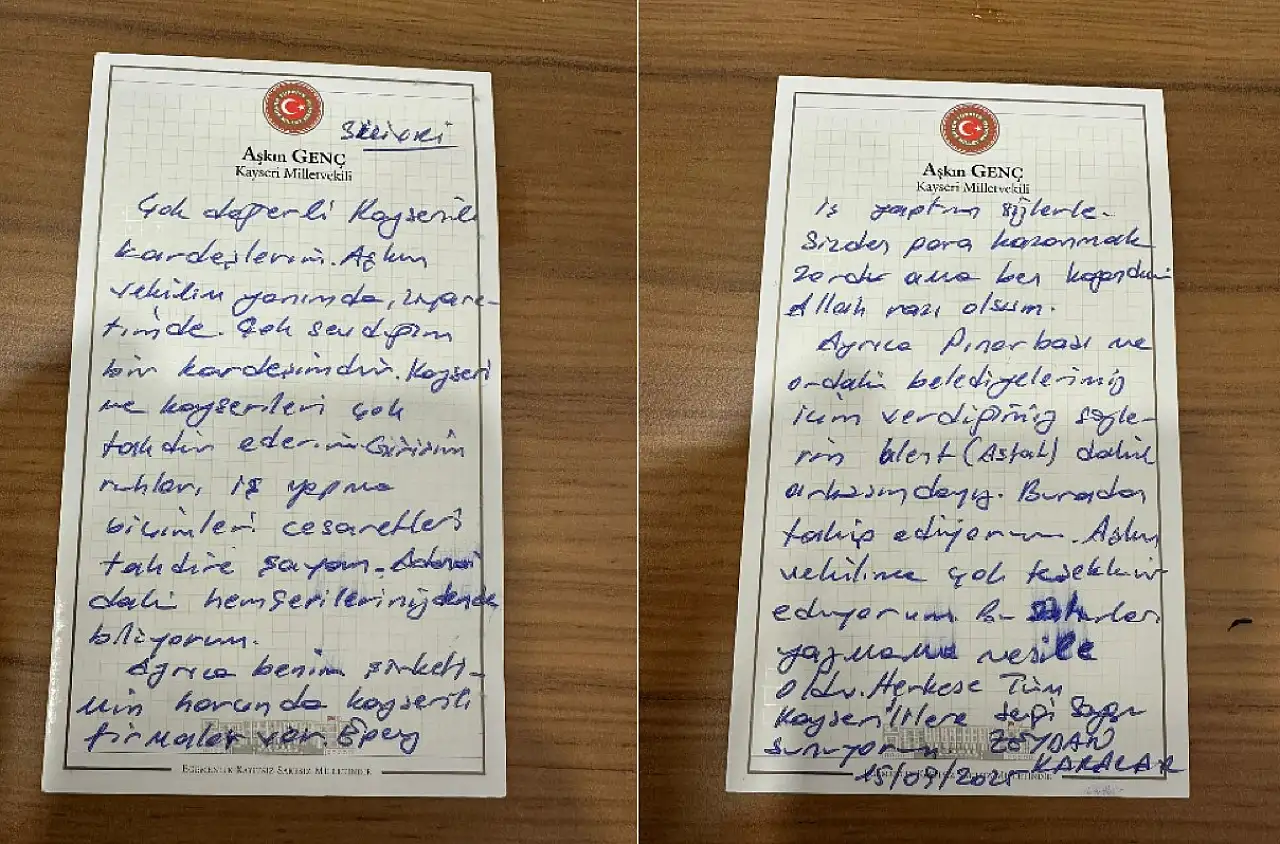 Silivri
Aşkın GENÇ
Kayseri Milletvekili
Çok değerli Kayserili
kardeşlerim. Aşkın
vekilim yanımda, ziyare-
timde. Çok sevdiğim
bir kardeşimdir. Kayseri
ve kayserileri çok
takdir ederim. Girişim
ruhları, iş yapma
biçimleri cesaretleri
takdire şayan. Adana
daki hemşerilerinizden de
biliyorum.
Ayrıca benim şirketi-
min harcında kayserili
firmalar var. Epey
EGEMENLİK KAYITSIZ ŞARTSIZ MİLLETİNDİR
Aşkın GENÇ
Kayseri Milletvekili
iş yaptım sizlerle.
Sizden para kazanmak
zordur ama ben kazandım
Allah razı olsun.
Ayrıca Pınarbaşı ve
ordaki belediyelerimiz
için verdiğimiz sözle-
rin (Asfalt) dahil
arkasındayız. Buradan
takip ediyorum. Aşkın
vekilime çok teşekkür
ediyorum. Bu satırları
yazmama vesile
oldu. Herkese Tüm
Kayserililere sevgi Saygı
sunuyorum. ZEYDAN
KARALAR
15/09/2025